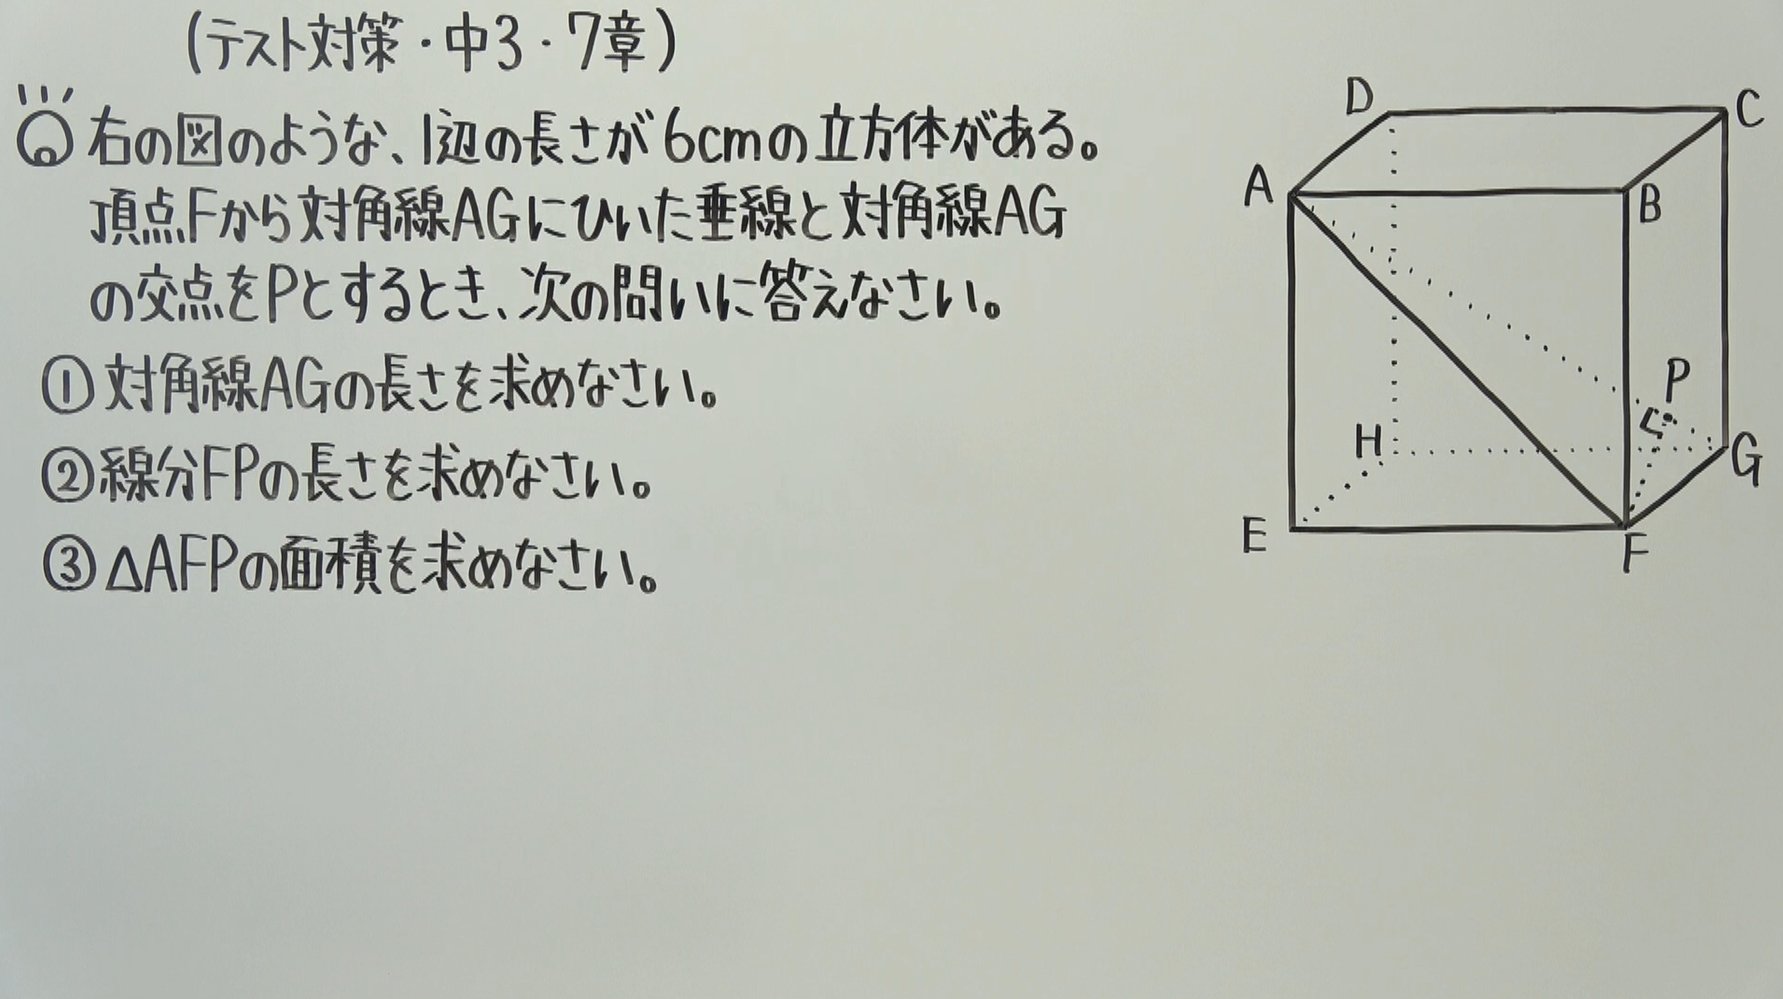 (テスト対策・中3・7章)
Q 右の図のような、1辺の長さが6cmの立方体がある。
頂点Fから対角線AGにひいた垂線と対角線AG
の交点をPとするとき、次の問いに答えなさい。
①対角線AGの長さを求めなさい。
②線分FPの長さを求めなさい。
③△AFPの面積を求めなさい。
D
C
A
B
P
H
G
E
F